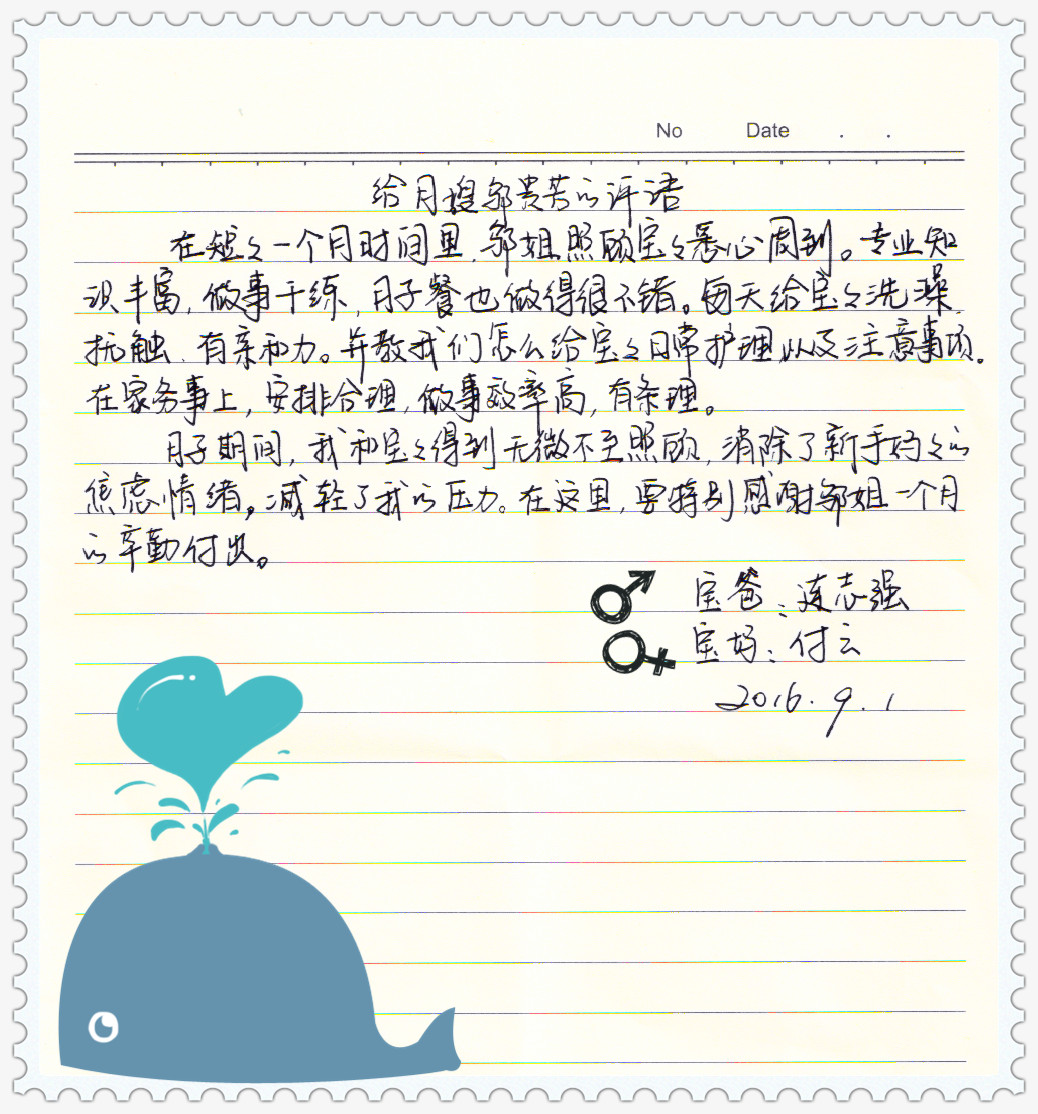 No Date . .
给月嫂邹贵芳的评语
在短々一个月时间里,邹姐照顾宝々悉心周到。专业知
识丰富,做事干练,月子餐也做得很不错。每天给宝々洗澡、
抚触、有亲和力。并教我们怎么给宝々日常护理以及注意事项。
在家务事上,安排合理,做事效率高,有条理。
月子期间,我和宝々得到无微不至照顾,消除了新手妈々的
焦虑情绪。减轻了我的压力。在这里,要特别感谢邹姐一个月
的辛勤付出。
宝爸:连志强
宝妈:付云
2016.9.1